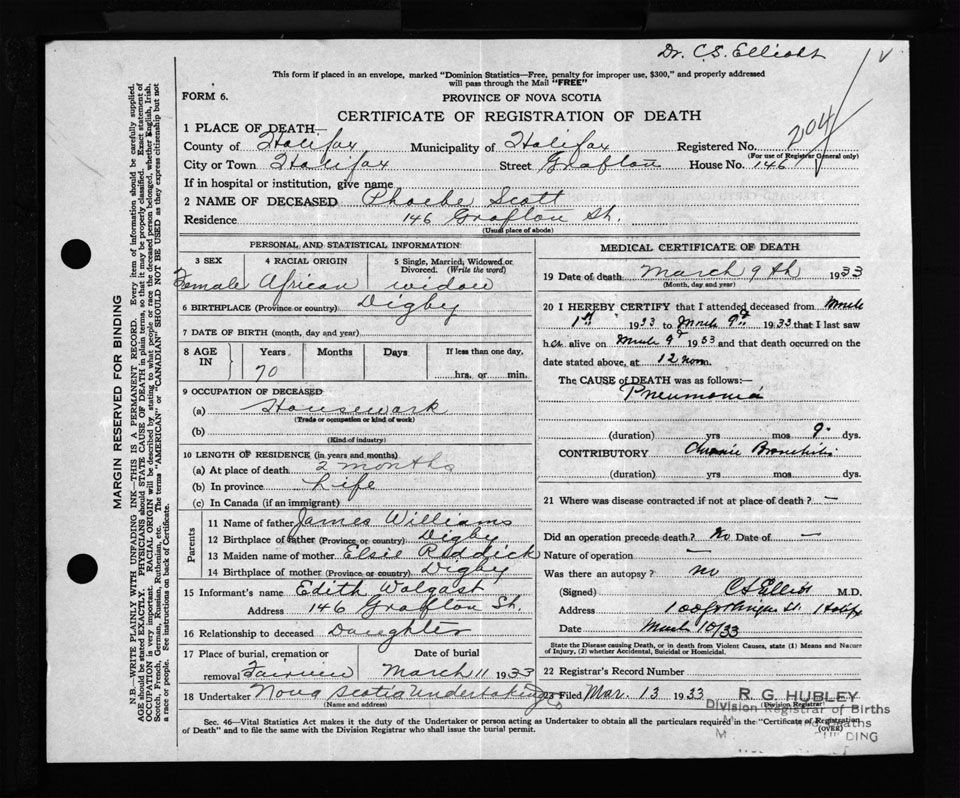 Dr. C.S. Elliott
This form if placed in an envelope, marked "Dominion Statistics—Free, penalty for improper use, $300," and properly addressed
will pass through the Mail "FREE"
FORM 6.
PROVINCE OF NOVA SCOTIA
CERTIFICATE OF REGISTRATION OF DEATH
1 PLACE OF DEATH—
County of Halifax Municipality of Halifax Registered No. 204
(For use of Registrar General only)
City or Town Halifax Street Grafton House No. 146
If in hospital or institution, give name
2 NAME OF DECEASED Phoebe Scott
Residence 146 Grafton St.
(Usual place of abode)
PERSONAL AND STATISTICAL INFORMATION
3 SEX 4 RACIAL ORIGIN 5 Single, Married, Widowed or
Divorced. (Write the word)
Female African widow
6 BIRTHPLACE (Province or country) Digby
7 DATE OF BIRTH (month, day and year)
8 AGE IN Years Months Days If less than one day,
70 hrs. or min.
9 OCCUPATION OF DECEASED
(a) Housework
(Trade or occupation or kind of work)
(b)
(Kind of industry)
10 LENGTH OF RESIDENCE (in years and months)
(a) At place of death 2 months
(b) In province Life
(c) In Canada (if an immigrant)
Parents
11 Name of father James Williams
12 Birthplace of father (Province or country) Digby
13 Maiden name of mother Elsie Riddick
14 Birthplace of mother (Province or country) Digby
15 Informant's name Edith Walgast
Address 146 Grafton St.
16 Relationship to deceased Daughter
17 Place of burial, cremation or Date of burial
removal Fairview March 11 1933
18 Undertaker Nova Scotia Undertaking
(Name and address)
MEDICAL CERTIFICATE OF DEATH
19 Date of death March 9th 1933
(Month, day and year)
20 I HEREBY CERTIFY that I attended deceased from March
1st 1933 to March 9th 1933 that I last saw
her alive on March 9th 1933 and that death occurred on the
date stated above, at 12 noon.
The CAUSE of DEATH was as follows:—
Pneumonia
(duration) yrs mos 9 dys.
CONTRIBUTORY Chronic Bronchitis
(duration) yrs mos dys.
21 Where was disease contracted if not at place of death? —
Did an operation precede death? No Date of —
Nature of operation —
Was there an autopsy? no
(Signed) CS Elliott M.D.
Address St. Halifax
Date March 10/33
State the Disease causing Death, or in death from Violent Causes, state (1) Means and Nature
of Injury, (2) whether Accidental, Suicidal or Homicidal.
22 Registrar's Record Number
23 Filed Mar. 13 1933 R. G. HUBLEY
(Division Registrar)
Division Registrar of Births
and Deaths
Sec. 46—Vital Statistics Act makes it the duty of the Undertaker or person acting as Undertaker to obtain all the particulars required in the "Certificate of Registration
of Death" and to file the same with the Division Registrar who shall issue the burial permit.
(OVER)
MARGIN RESERVED FOR BINDING
N.B.—WRITE PLAINLY WITH UNFADING INK—THIS IS A PERMANENT RECORD. Every item of information should be carefully supplied.
AGE should be stated EXACTLY. PHYSICIANS should STATE CAUSE OF DEATH in plain terms, so that it may be properly classified. Exact statement of
OCCUPATION is very important. RACIAL ORIGIN will be described by stating to what people or race the deceased person belonged, whether English, Irish,
Scotch, French, German, Russian, Ruthenian, etc. The terms "AMERICAN" or "CANADIAN" SHOULD NOT BE USED as they express citizenship but not
a race or people. See instructions on back of Certificate.